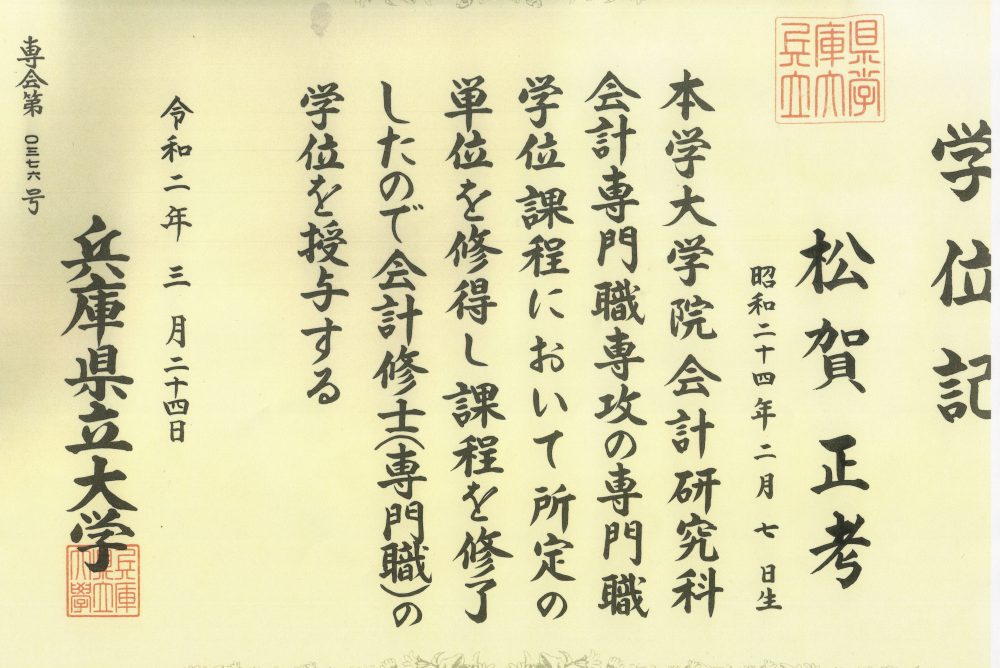 学位記
兵庫県立大学
松賀正考
昭和二十四年二月七日生
本学大学院会計研究科
会計専門職専攻の専門職
学位課程において所定の
単位を修得し課程を修了
したので会計修士(専門職)の
学位を授与する
令和二年三月二十四日
兵庫県立大学
専会第〇三七六号